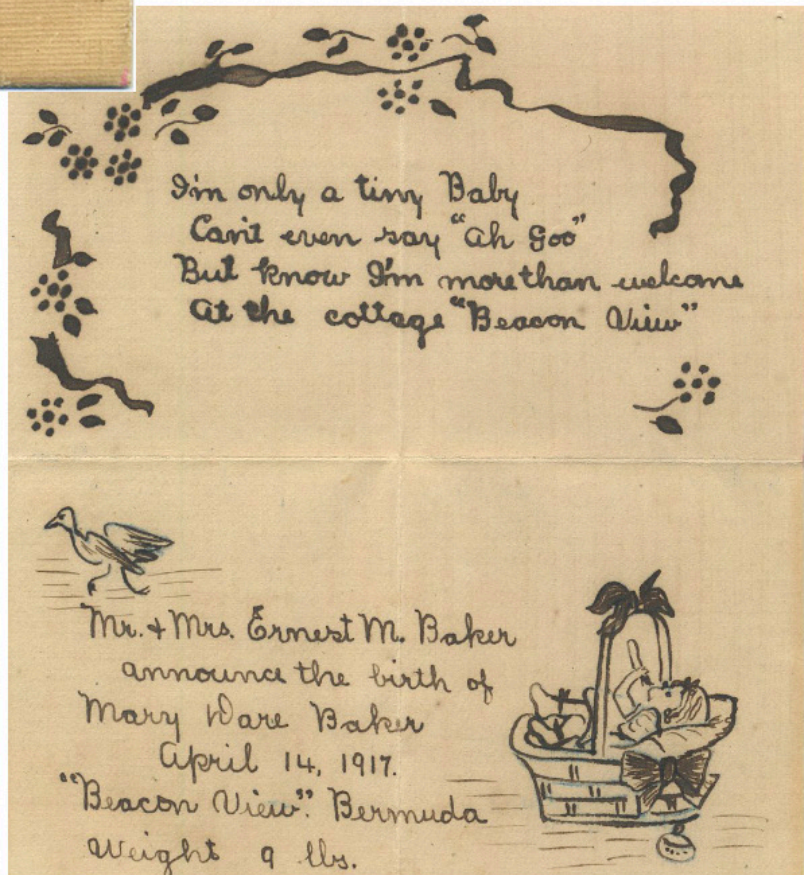 I'm only a tiny Baby
Can't even say "Ah Goo"
But know I'm more than welcome
At the cottage "Beacon View"
Mr. & Mrs. Ernest M. Baker
announce the birth of
Mary Ware Baker
April 14, 1917.
"Beacon View". Bermuda
Weight 9 lbs.